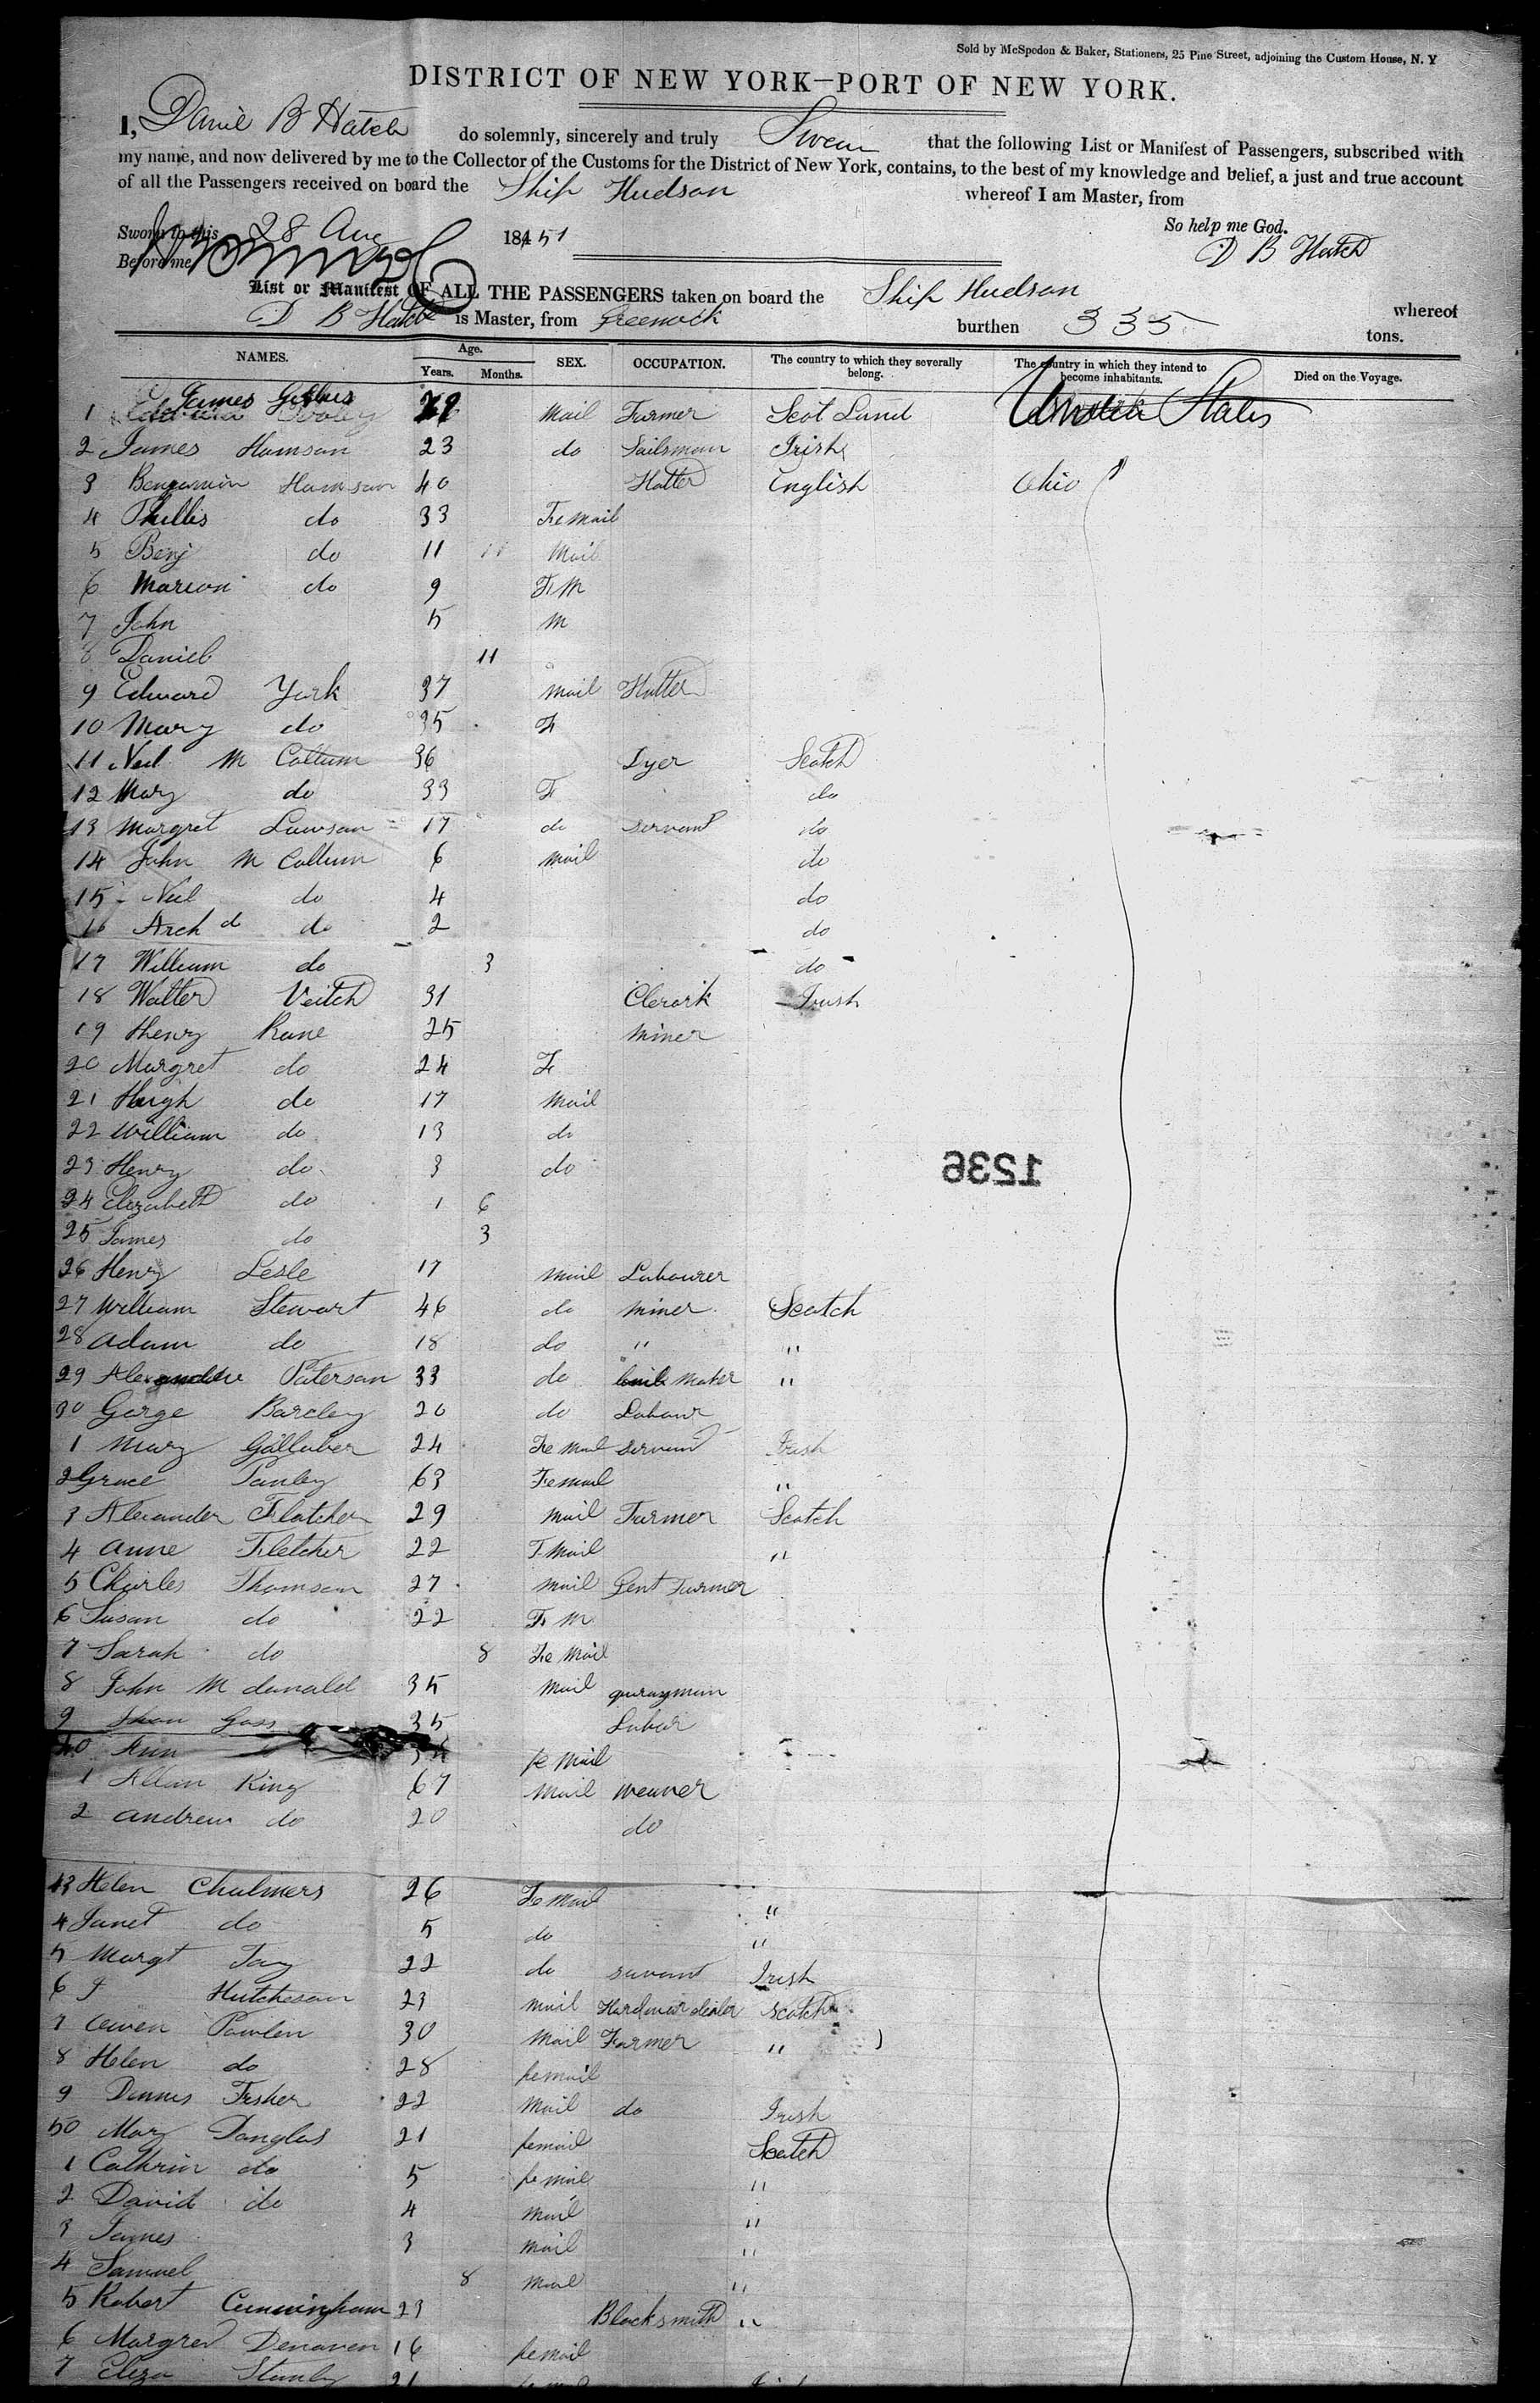 Sold by McSpedon & Baker, Stationers, 25 Pine Street, adjoining the Custom House, N. Y
DISTRICT OF NEW YORK—PORT OF NEW YORK.
I, Daniel B Hatch do solemnly, sincerely and truly Swear that the following List or Manifest of Passengers, subscribed with
my name, and now delivered by me to the Collector of the Customs for the District of New York, contains, to the best of my knowledge and belief, a just and true account
of all the Passengers received on board the Ship Hudson whereof I am Master, from
So help me God.
Sworn to this 28 Aug 18451
D B Hatch
Before me
List or Manifest OF ALL THE PASSENGERS taken on board the Ship Hudson whereof
D B Hatch is Master, from Greenock burthen 335 tons.
NAMES. Age. Years. Months. SEX. OCCUPATION. The country to which they severally belong. The country in which they intend to become inhabitants. Died on the Voyage.
1 James Mail Farmer Scot Land United States
2 James Hamson 23 do Sailsman Irish
3 Bengamin Hamson 40 Hatter English Ohio
4 Phillis do 33 Fe mail
5 Benj do 11 Mail
6 Marion do 9 Fe M
7 John 5 M
8 Daniel 11
9 Edward York 37 Mail Hatter
10 Mary do 35 Fe
11 Neil M Collum 36 Dyer Scotch
12 Mary do 33 Fe do
13 Margret Lawson 17 do servant do
14 John M Collum 6 mail do
15 Neil do 4 do
16 Archd do 2 do
17 William do 3 do
18 Walter Veitch 31 Clerork Irush
19 Henry Rane 25 miner
20 Margret do 24 Fe
21 Hugh do 17 Mail
22 William do 13 do
23 Henry do 3 do
24 Elizabeth do 1 6
25 James do 3
26 Henry Lesle 17 mail Labourer
27 William Stewart 46 do miner Scotch
28 Adam do 18 do " "
29 Alexander Paterson 33 do maker "
30 Gorge Barcley 20 do Labour
1 Mary Gallaher 24 Fe Mal servant Irish
2 Grace 63 Femail "
3 Alexander Flatcher 29 Mail Farmer Scotch
4 Anne Fletcher 22 F Mail "
5 Charles Thomson 27 mail Gent Farmer
6 Susan do 22 Fe M
7 Sarah do 8 Fe Mail
8 John M donald 35 Mail quraymun
9 Goss 35 Labor
40 Ann do fe Mail
1 Allan King 67 Mail weaver
2 Andrew do 20 do
43 Helen Chalmers 26 Fe Mail "
4 Janet do 5 do "
5 Margt 22 do survant Irish
6 J Hutcheson 23 mail Hardwar dealer scotch
7 Owen 30 Mail Farmer "
8 Helen do 28 femail
9 Dennis Fisher 22 Mail do Irish
50 Mary Douglas 21 femail Scotch
1 Cathrin do 5 fe mail "
2 David do 4 Mail "
3 James 3 mail "
4 Samuel 8 mail "
5 Robert Cunningham 23 Blacksmith "
6 Margret Denaven 16 femail
7 Eliza Stanley 21
1236